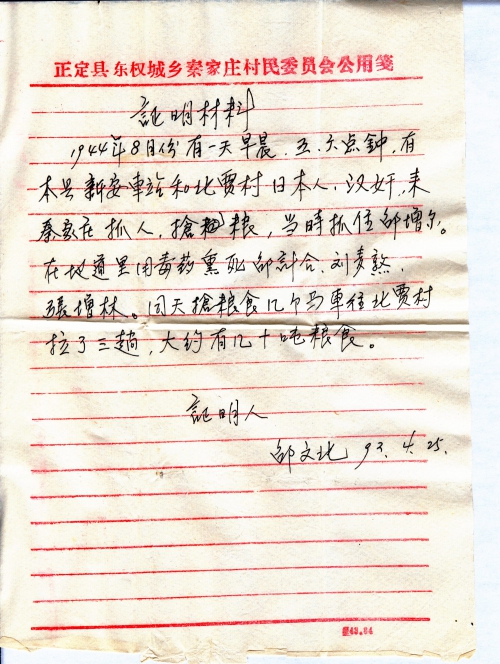 正定县东权城乡秦家庄村民委员会公用笺
証明材料
1944年8月份有一天早晨,五、六点鈡,有
本县新安車站和北贾村日本人,汉奸,来
秦家庄抓人,搶粮,当時抓住邵增尔。
在地道里用毒药熏死邵計合、刘麦熟、
張增林。同天搶粮食几个马車往北贾村
拉了三趟,大约有几十吨粮食。
証明人
邵文北 93.4.25.